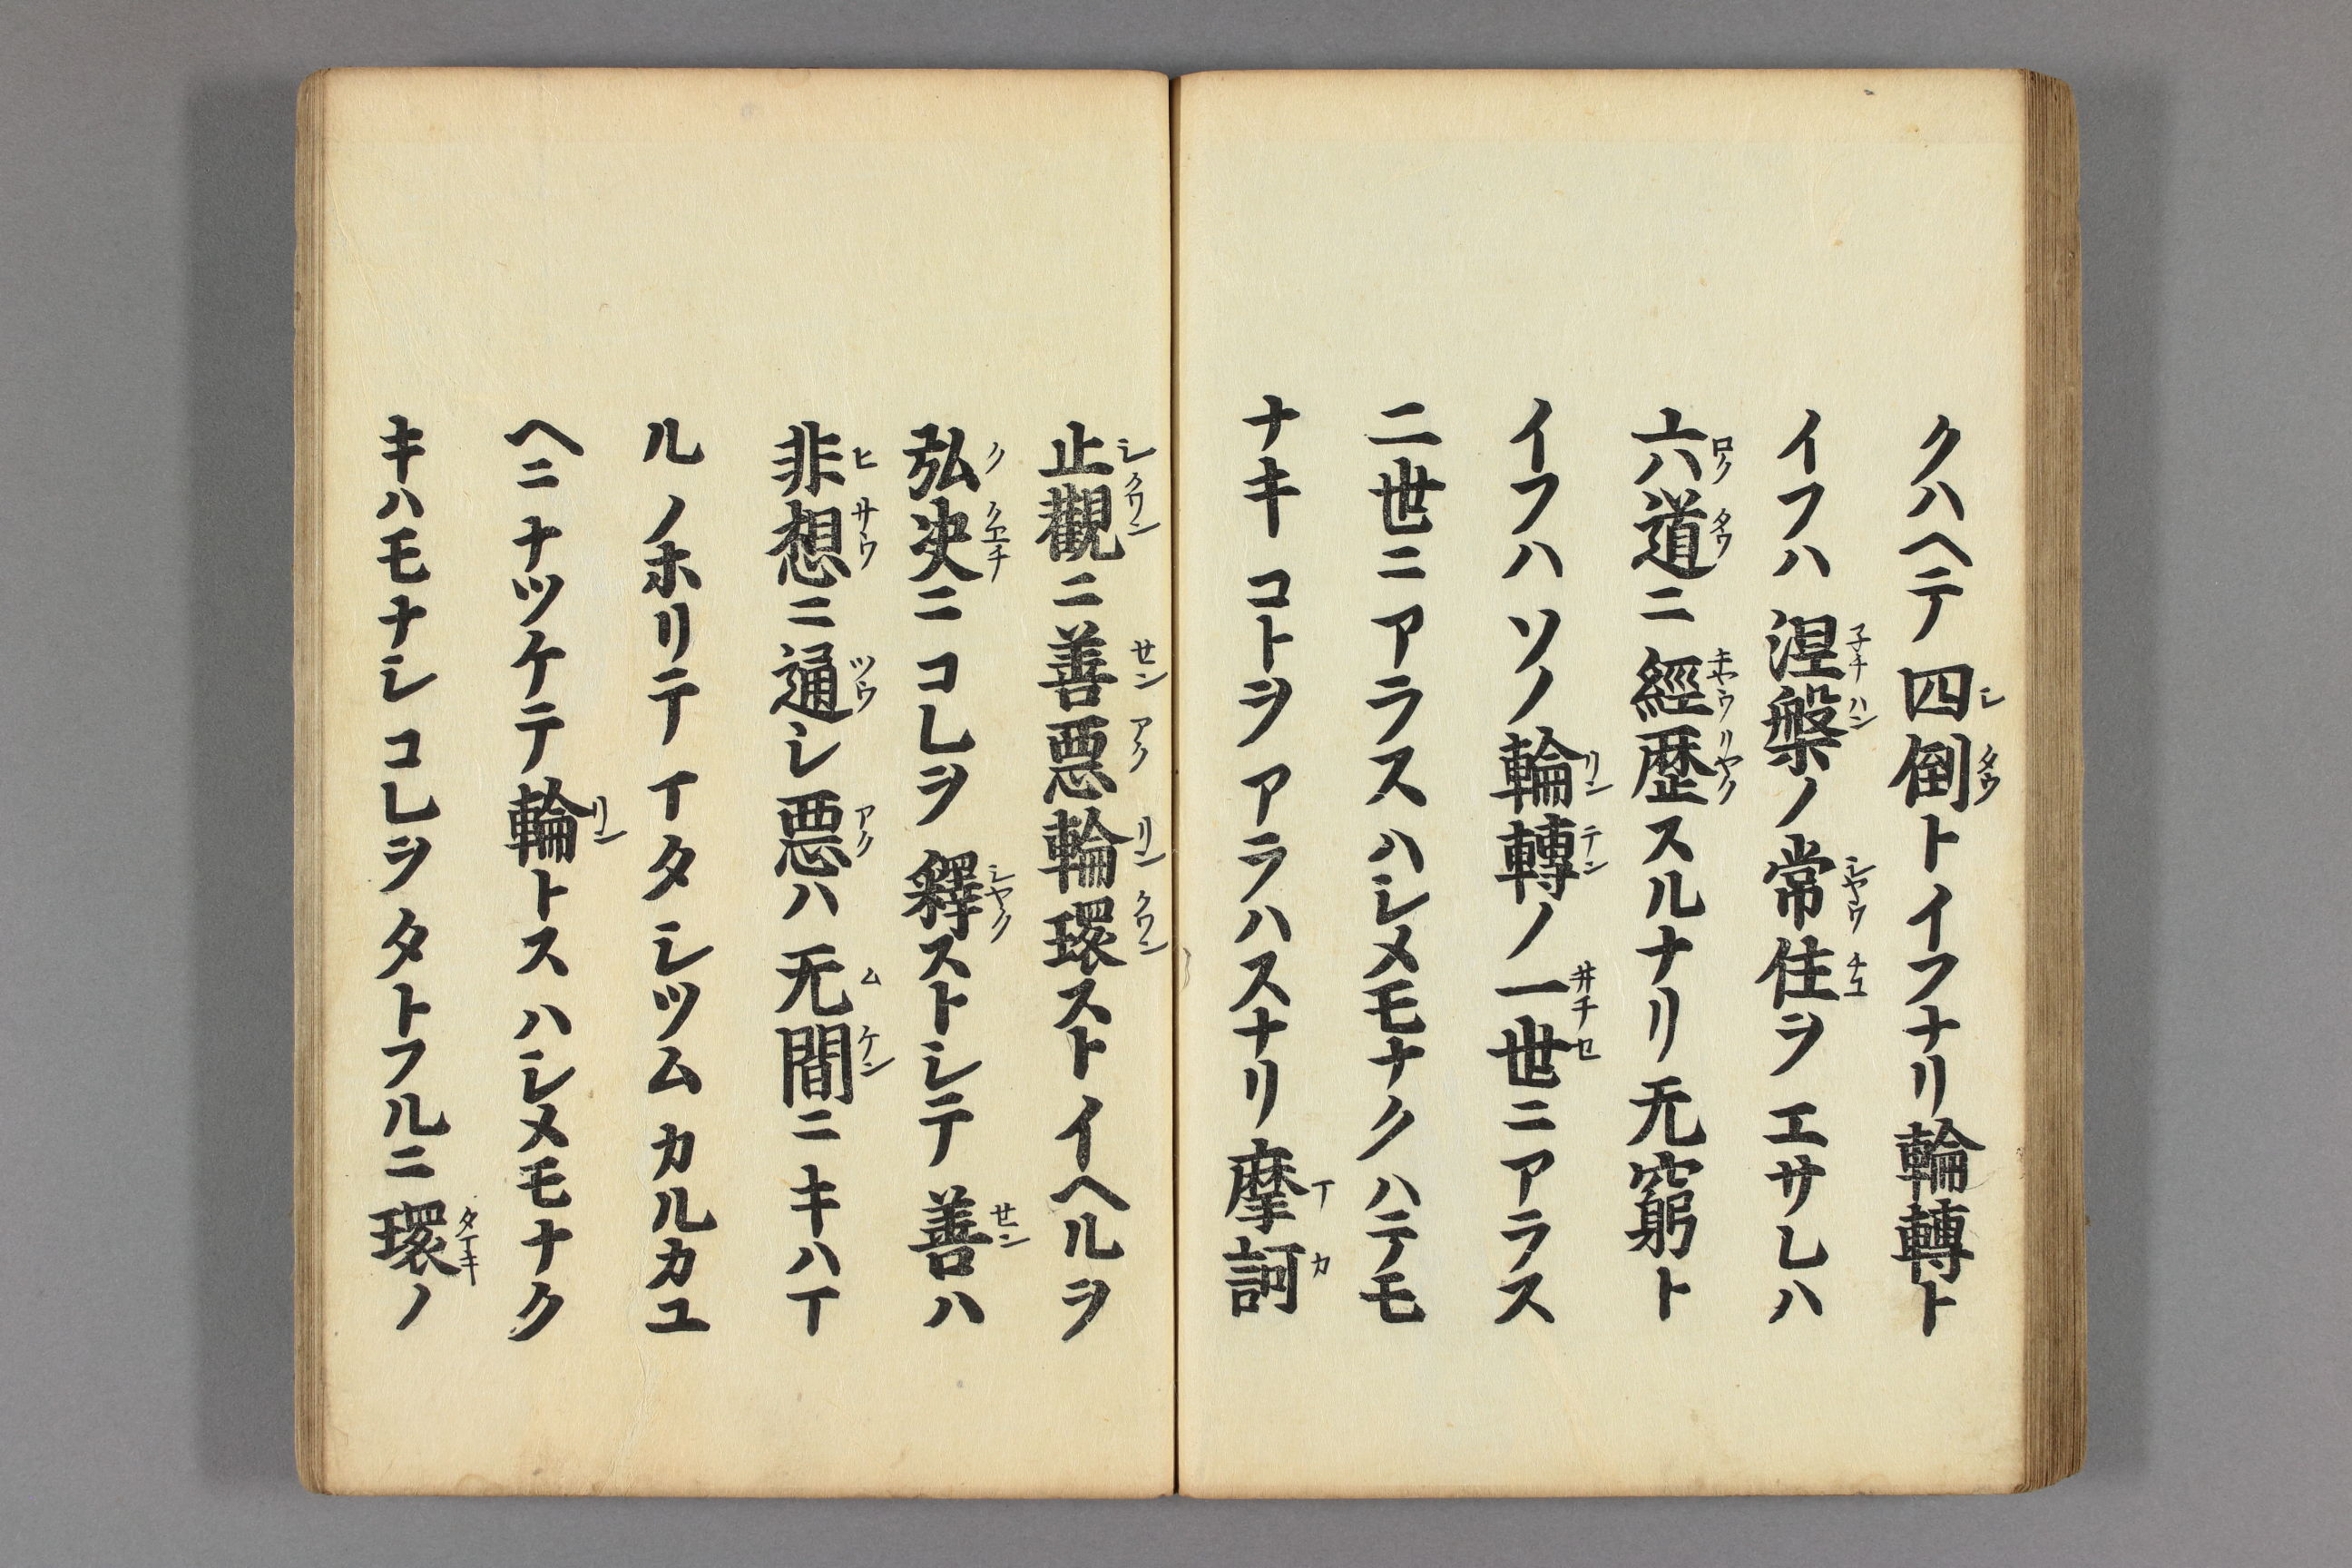 クハヘテ四倒トイフナリ輪轉ト
イフハ涅槃ノ常住ヲエサレハ
六道ニ經歴スルナリ无窮ト
イフハソノ輪轉ノ一世ニアラス
二世ニアラスハシメモナクハテモ
ナキコトヲアラハスナリ摩訶
止觀ニ善惡輪環ストイヘルヲ
弘決ニコレヲ釋ストシテ善ハ
非想ニ通シ惡ハ无間ニキハマ
ルノホリテマタシツムカルカユ
ヘニナツケテ輪トスハシメモナク
キハモナシコレヲタトフルニ環ノ